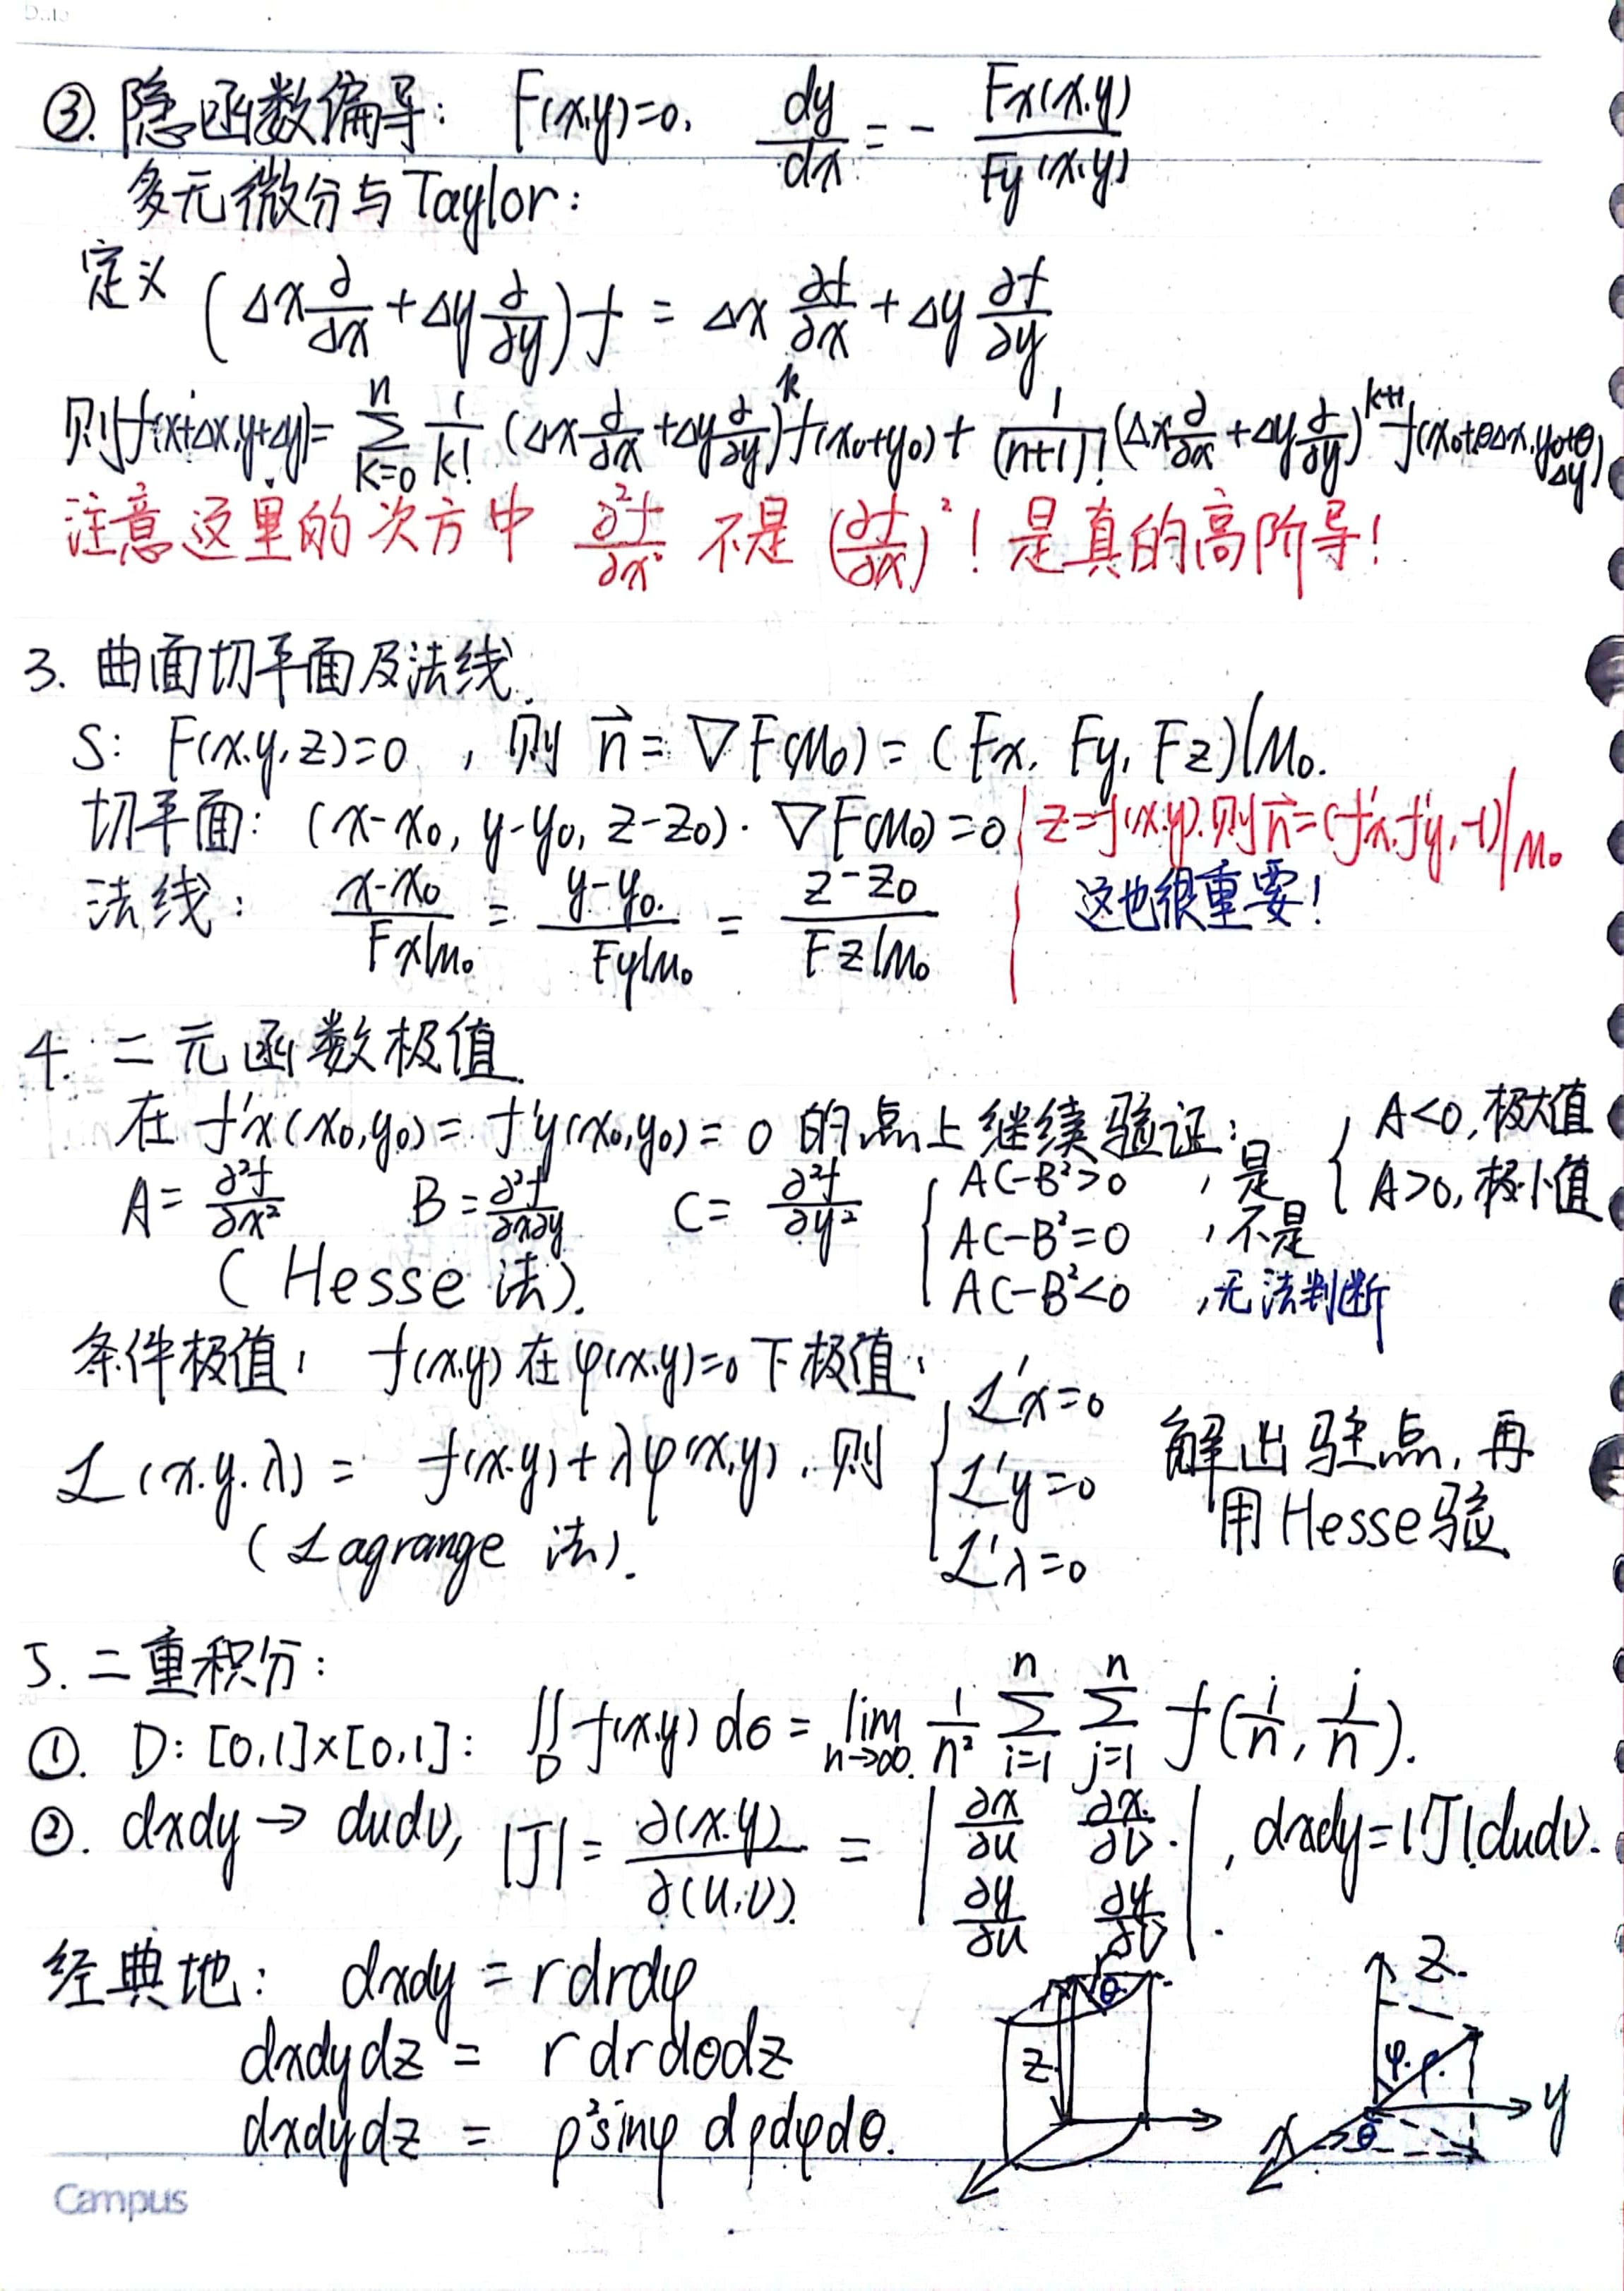 ③. 隐函数偏导: F(x,y)=0, dy/dx = - Fx(x,y)/Fy(x,y)
多元微分与Taylor:
定义 (Δx ∂/∂x + Δy ∂/∂y) f = Δx ∂f/∂x + Δy ∂f/∂y
则 f(x+Δx,y+Δy) = Σ_{k=0}^{n} 1/k! (Δx ∂/∂x + Δy ∂/∂y)^k f(x₀+y₀) + 1/(n+1)! (Δx ∂/∂x + Δy ∂/∂y)^{k+1} f(x₀+θΔx, y₀+θΔy)
注意这里的次方中 ∂²f/∂x² 不是 (∂f/∂x)² ! 是真的高阶导!
3. 曲面切平面及法线.
S: F(x,y,z)=0 , 则 n⃗ = ∇F(M₀) = (Fx, Fy, Fz)|M₀.
切平面: (x-x₀, y-y₀, z-z₀)·∇F(M₀)=0
法线: (x-x₀)/Fx|M₀ = (y-y₀)/Fy|M₀ = (z-z₀)/Fz|M₀
z=f(x,y), 则 n⃗=(f'x, f'y, -1)|M₀
这也很重要!
4. 二元函数极值
在 f'x(x₀,y₀) = f'y(x₀,y₀) = 0 的点上继续验证:
A = ∂²f/∂x² B = ∂²f/∂x∂y C = ∂²f/∂y²
(Hesse 法).
AC-B²>0 , 是 { A<0, 极大值
A>0, 极小值
AC-B²=0 , 不是
AC-B²<0 , 无法判断
条件极值: f(x,y) 在 φ(x,y)=0 下极值:
L(x,y,λ) = f(x,y)+λφ(x,y), 则
(Lagrange 法).
L'x=0
L'y=0
L'λ=0
解出驻点, 再
用 Hesse 验
5. 二重积分:
①. D: [0,1]×[0,1]: ∬_D f(x,y) dσ = lim_{n→∞} 1/n² Σ_{i=1}^{n} Σ_{j=1}^{n} f(i/n, j/n).
②. dxdy → dudv, |J| = ∂(x,y)/∂(u,v) = | ∂x/∂u ∂x/∂v ; ∂y/∂u ∂y/∂v | , dxdy=|J|dudv.
经典地: dxdy = rdrdφ
dxdydz = rdrdθdz
dxdydz = ρ²sinφ dρdφdθ.
r θ
z
z
φ ρ
y
x θ
Campus